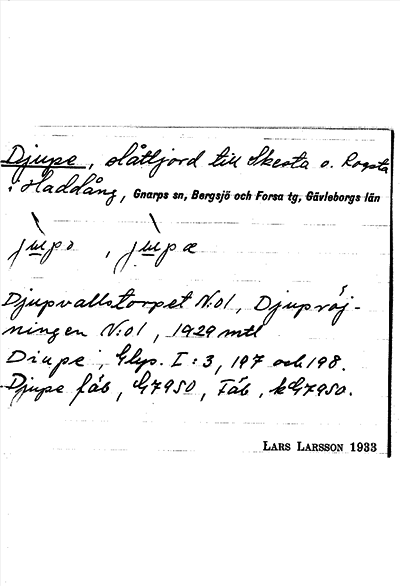 Djupe, slåttjord till Skesta o. Rogsta
i Haddång, Gnarps sn, Bergsjö och Forsa tg, Gävleborgs län
jupə, jupæ
Djupvallstorpet N:o1, Djupröj-
ningen N:o1, 1929 mtl
Diupe, Glyp. I:3, 197 och 198.
Djupe fäb, G7950, Fäb, kG7950.
LARS LARSSON 1933